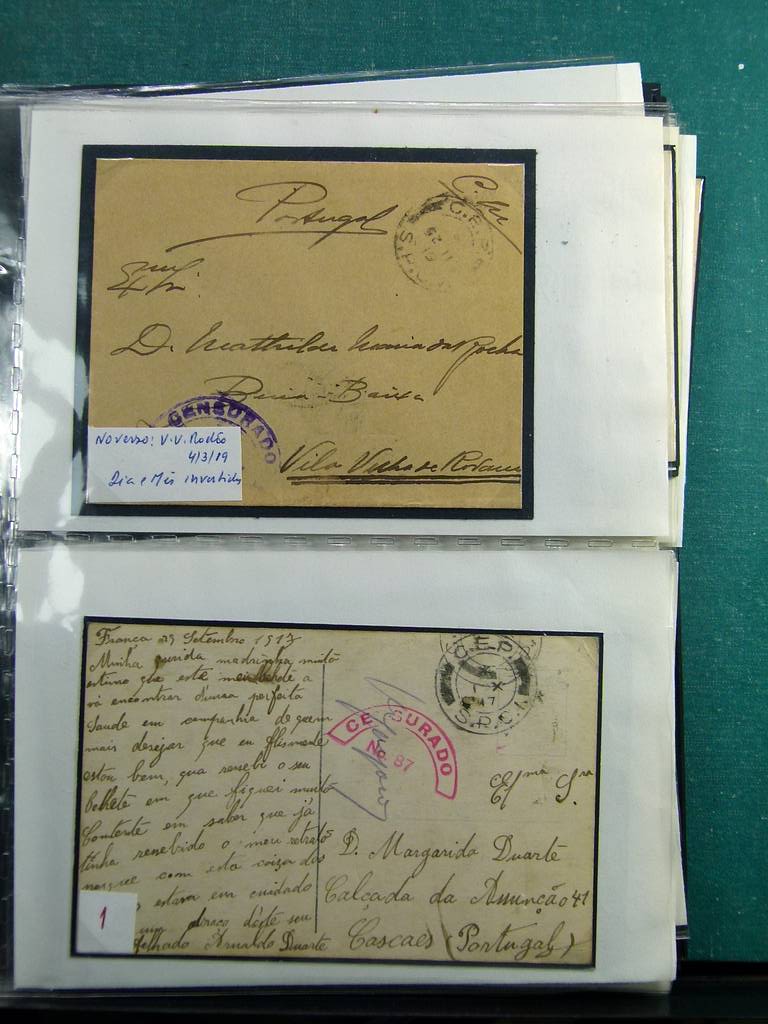 Portugal
C.E.P.
S.P.H.
Exma Sra
D. Mathilde Maria da Rocha
Beira-Baixa
CENSURADO
Vila Velha de Rodam
No verso: V.V. Rodão
4/3/19
Dia e Mês invertidos
França 29 Setembro 1917
Minha querida madrinha muito
estimo que esta
vá encontrar d'uma perfeita
Saude em companhia de quem
mais desejar que eu filismente
estou bem, qua resebi o seu
belhete em que fiquei muito
Contente em saber que já
tinha resebido o meu retrato
porque com esta coiza dos
estava em cuidado
um abraço dêste seu
afelhado Arnaldo Duarte
1
C.E.P.
X
17
S.P.C.1
CENSURADO
Nº 87
Exma Sra
D. Margarida Duarte
Calçada da Assunção 41
Cascaes (Portugal)